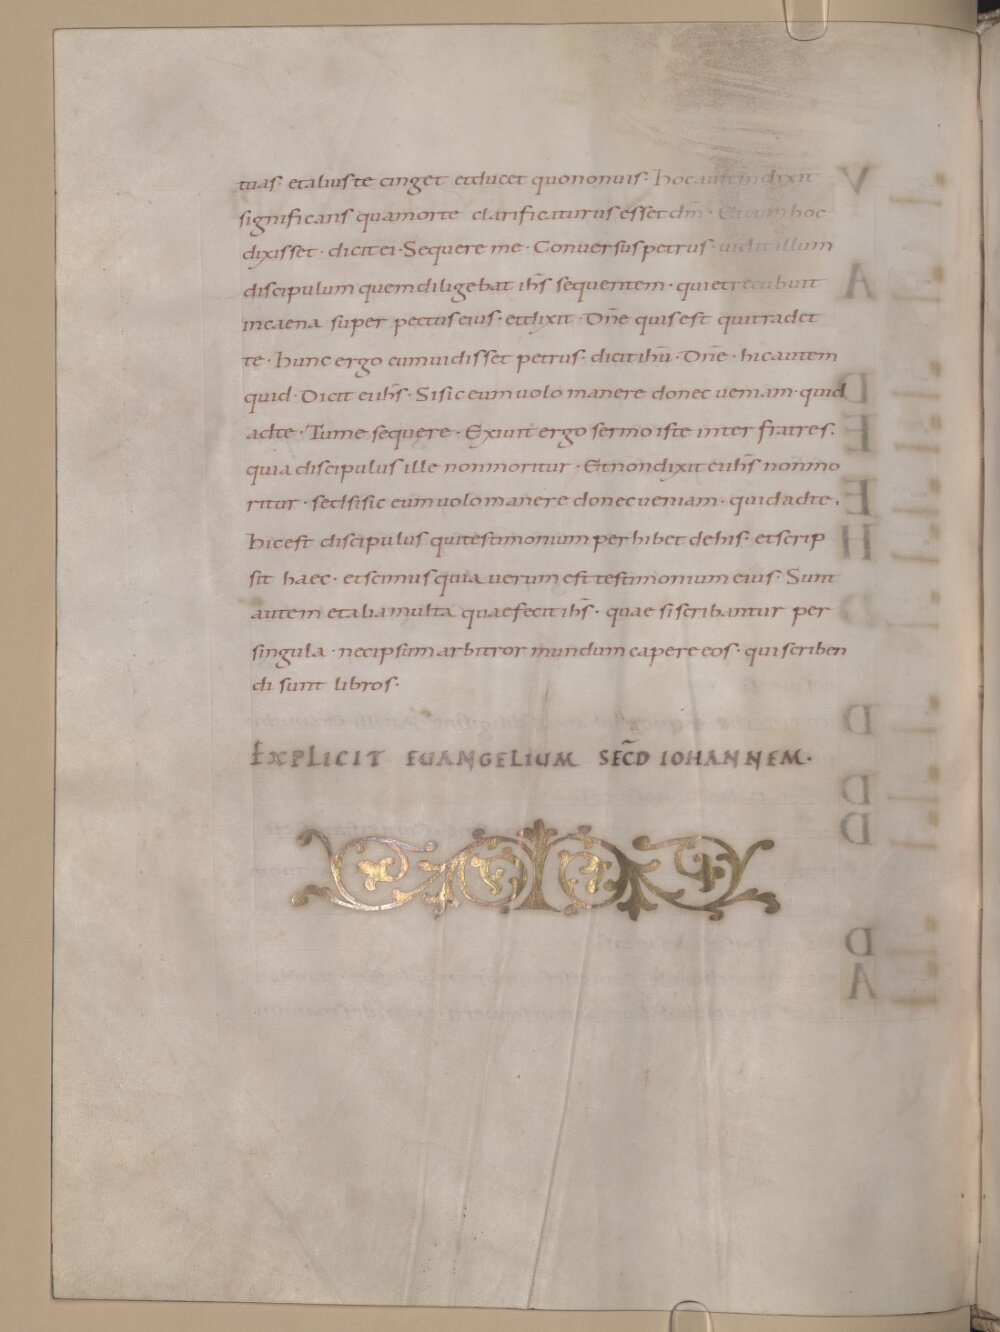 tuas· et alius te cinget et ducet quo non uis· Hoc autem dixit
significans qua morte clarificaturus esset dm̄· Et cum hoc
dixisset· dicit ei· Sequere me· Conuersus petrus· uidit illum
discipulum quem diligebat ihs̄ sequentem· qui et recubuit
in caena super pectus eius· et dixit· Dn̄e quis est qui tradet
te· Hunc ergo cum uidisset petrus· dicit ihū· Dn̄e· hic autem
quid· Dicit ei ihs̄· Si sic eum uolo manere donec ueniam· quid
ad te· Tu me sequere· Exiuit ergo sermo iste inter fratres·
quia discipulus ille non moritur· Et non dixit ei ihs̄ non mo
ritur· sed si sic eum uolo manere donec ueniam· quid ad te·
Hic est discipulus qui testimonium perhibet de his· et scrip
sit haec· et scimus quia uerum est testimonium eius· Sunt
autem et alia multa quae fecit ihs̄· quae si scribantur per
singula· nec ipsum arbitror mundum capere eos· qui scriben
di sunt libros·
EXPLICIT EUANGELIUM SEC̄D IOHANNEM·